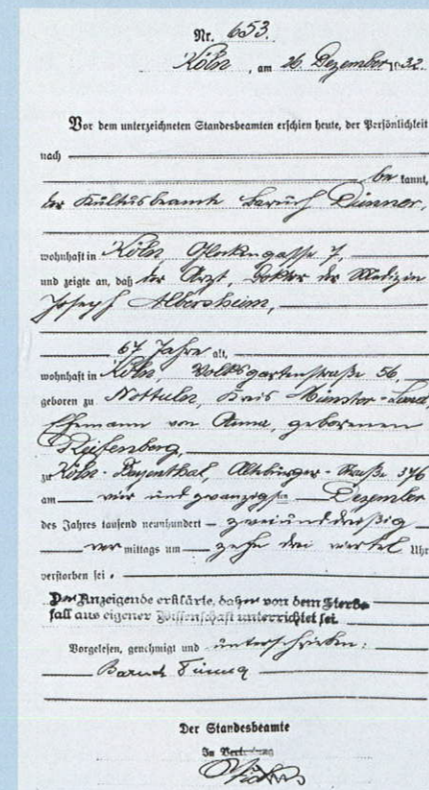 Nr. 653.
Köln, am 26. Dezember 32.
Vor dem unterzeichneten Standesbeamten erschien heute, der Persönlichkeit
nach
be kannt,
der Kultusbeamte Baruch Dünner,
wohnhaft in Köln Glockengasse 7,
und zeigte an, daß der Arzt, Doktor der Medizin
Joseph Albersheim,
67 Jahre alt,
wohnhaft in Köln, Volksgartenstraße 56,
geboren zu Nottuln, Kreis Münster-Land,
Ehemann von Anna, geborenen
Reifenberg,
zu Köln-Bayenthal, Alteburger-Straße 376
am vier und zwanzigsten Dezember
des Jahres tausend neunhundert zweiunddreißig
vor mittags um zehn drei viertel Uhr
verstorben sei.
Der Anzeigende erklärte, daß er von dem Sterbe-
fall aus eigener Wissenschaft unterrichtet sei.
Vorgelesen, genehmigt und unterschrieben:
Baruch Dünner
Der Standesbeamte
In Vertretung